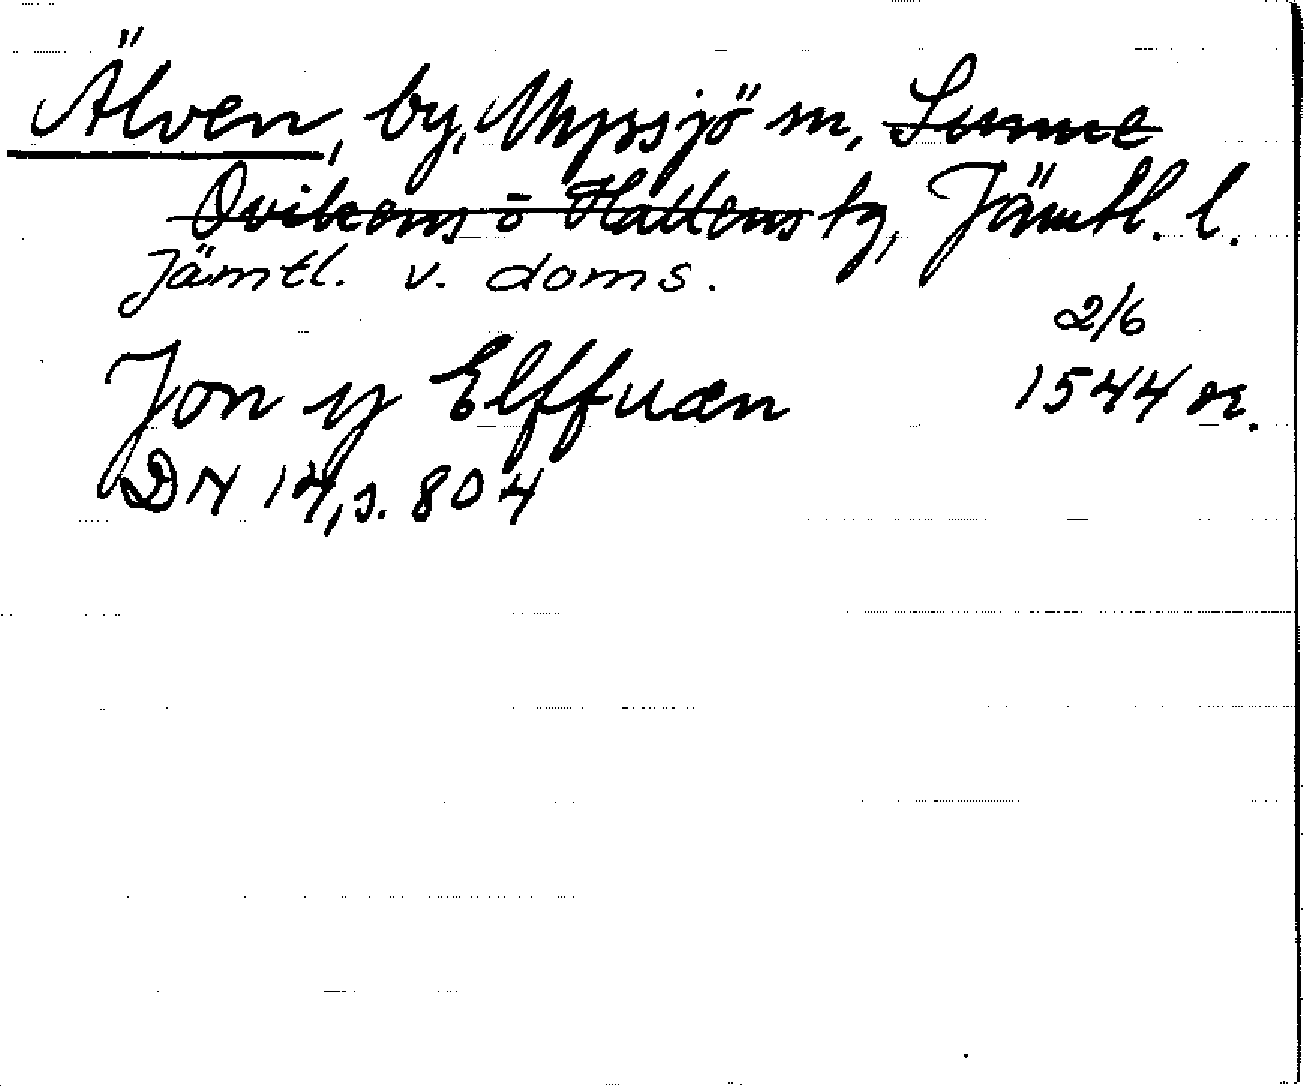 Älven, by, Myssjö sn, Sunne
Ovikens o Hallens tg, Jämtl. l.
Jämtl. v. doms.
2/6
Jon y Elffuæn 1544 or.
DN 14, s. 804